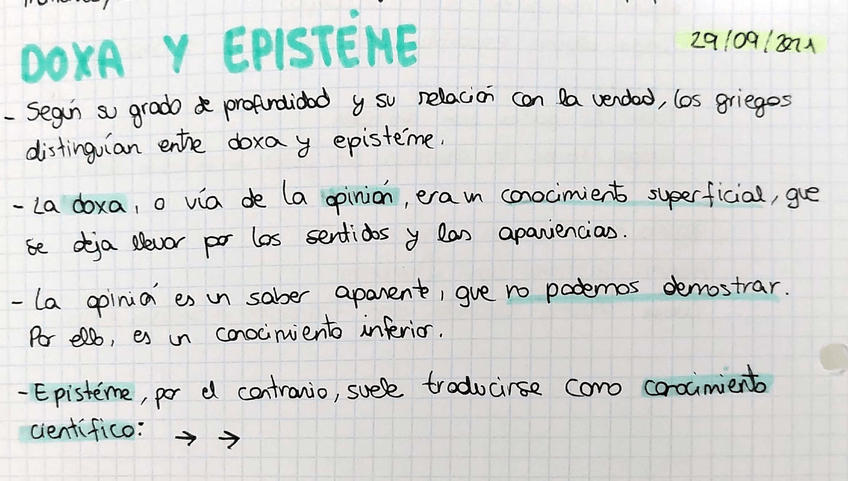 DOXA Y EPISTÉME
29/09/2021
- Según su grado de profundidad y su relación con la verdad, los griegos
distinguían entre doxa y epistéme.
- La doxa, o vía de la opinión, era un conocimiento superficial, que
se deja llevar por los sentidos y las apariencias.
- La opinión es un saber aparente, que no podemos demostrar.
Por ello, es un conocimiento inferior.
- Epistéme, por el contrario, suele traducirse como conocimiento
científico: → →